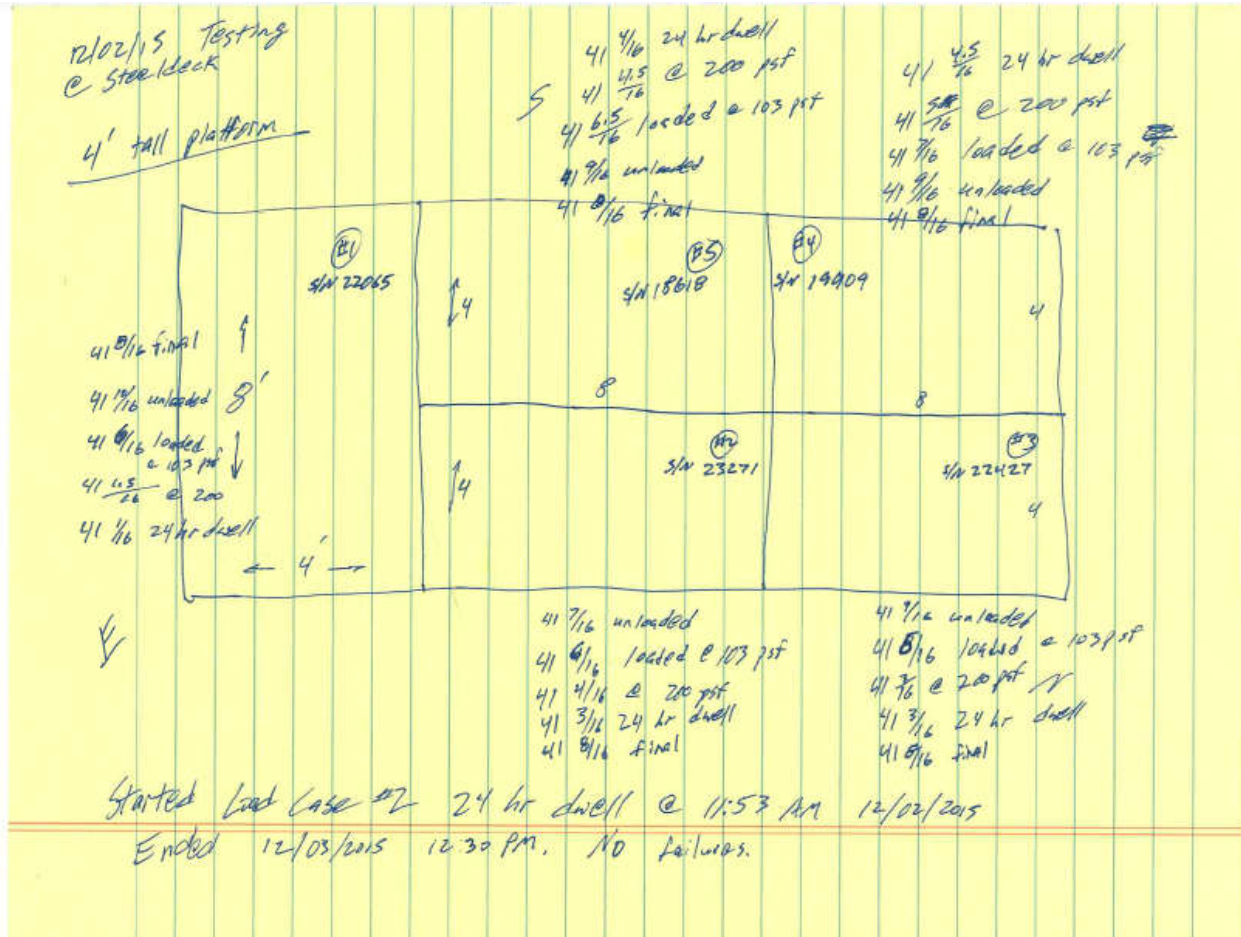 12/02/15 Testing
@ Steeldeck
4' tall platform
S
41 4/16 24 hr dwell
41 4.5/16 @ 200 psf
41 6.5/16 loaded @ 103 psf
41 9/16 unloaded
41 8/16 final
41 4.5/16 24 hr dwell
41 5/16 @ 200 psf
41 7/16 loaded @ 103 psf
41 9/16 unloaded
41 8/16 final
#1
S/N 22065
#5
S/N 18618
#4
S/N 19909
4
4
8
8
41 8/16 final
41 10/16 unloaded
8'
41 6/16 loaded
@ 103 psf
41 4.5/16 @ 200
41 1/16 24 hr dwell
4'
#2
S/N 23271
4
#3
S/N 22427
4
E
41 7/16 unloaded
41 6/16 loaded @ 103 psf
41 4/16 @ 200 psf
41 3/16 24 hr dwell
41 8/16 final
41 9/16 unloaded
41 5/16 loaded @ 103 psf
41 3/16 @ 200 psf
N
41 3/16 24 hr dwell
41 8/16 final
Started Load Case #2 24 hr dwell @ 11:53 AM 12/02/2015
Ended 12/03/2015 12:30 PM. No failures.